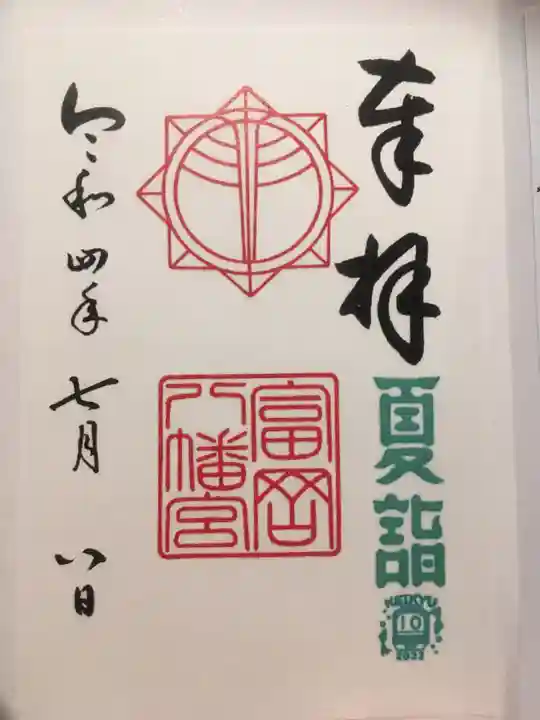 奉拝
夏詣
KEIKYU
10
2022
富岡
八幡宮
令和四年七月八日